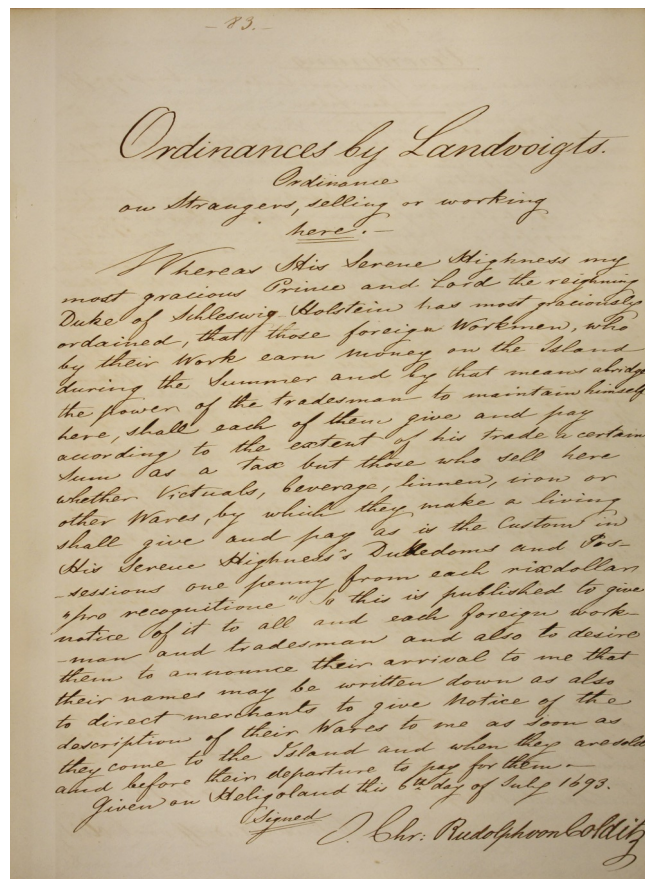 - 83. -
Ordinances by Landvoigts.
Ordinance
on Strangers, selling or working
here. -
Whereas His Serene Highness my
most gracious Prince and Lord the reigning
Duke of Schleswig Holstein has most graciously
ordained, that those foreign Workmen, who
by their Work earn money on the Island
during the Summer and by that means abridge
the power of the tradesman to maintain himself
here, shall each of them give and pay
according to the extent of his trade a certain
Sum as a tax but those who sell here
whether Victuals, beverage, linnen, iron or
other Wares, by which they make a living
shall give and pay as is the Custom in
His Serene Highness's Dukedoms and Pos-
-sessions one penny from each rixdollar
"pro recognitione" So this is published to give
notice of it to all and each foreign work-
-man and tradesman and also to desire
them to announce their arrival to me that
their names may be written down as also
to direct merchants to give Notice of the
description of their Wares to me as soon as
they come to the Island and when they are sold
and before their departure to pay for them. -
Given on Heligoland this 6th day of July 1693.
Signed
J. Chr: Rudolph von Colditz